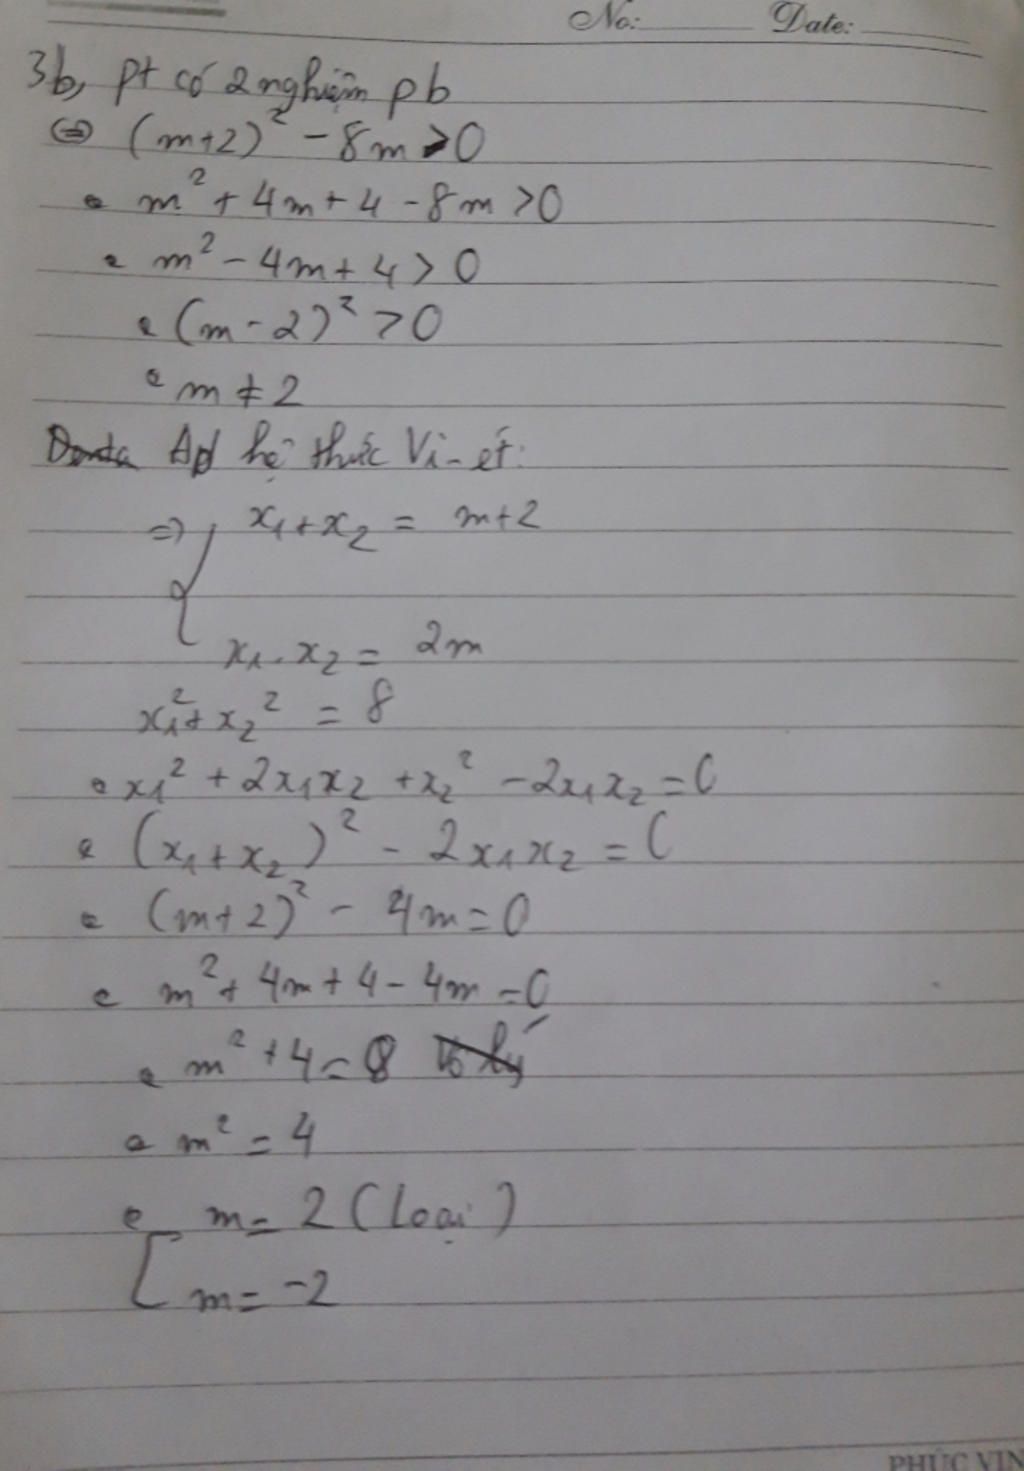 No: Date:
3b, pt có 2 nghiệm pb
⇔ (m+2)² - 8m > 0
⇔ m² + 4m + 4 - 8m > 0
⇔ m² - 4m + 4 > 0
⇔ (m - 2)² > 0
⇔ m ≠ 2
Ap hệ thức Vi-ét:
⇒ { x₁ + x₂ = m+2
x₁ . x₂ = 2m
x₁² + x₂² = 8
⇔ x₁² + 2x₁x₂ + x₂² - 2x₁x₂ = 0
⇔ (x₁ + x₂)² - 2x₁x₂ = 0
⇔ (m+2)² - 4m = 0
⇔ m² + 4m + 4 - 4m = 0
⇔ m² + 4 = 8 Vô lý
⇔ m² = 4
⇔ [ m = 2 (loại)
m = -2
PHÚC VIN